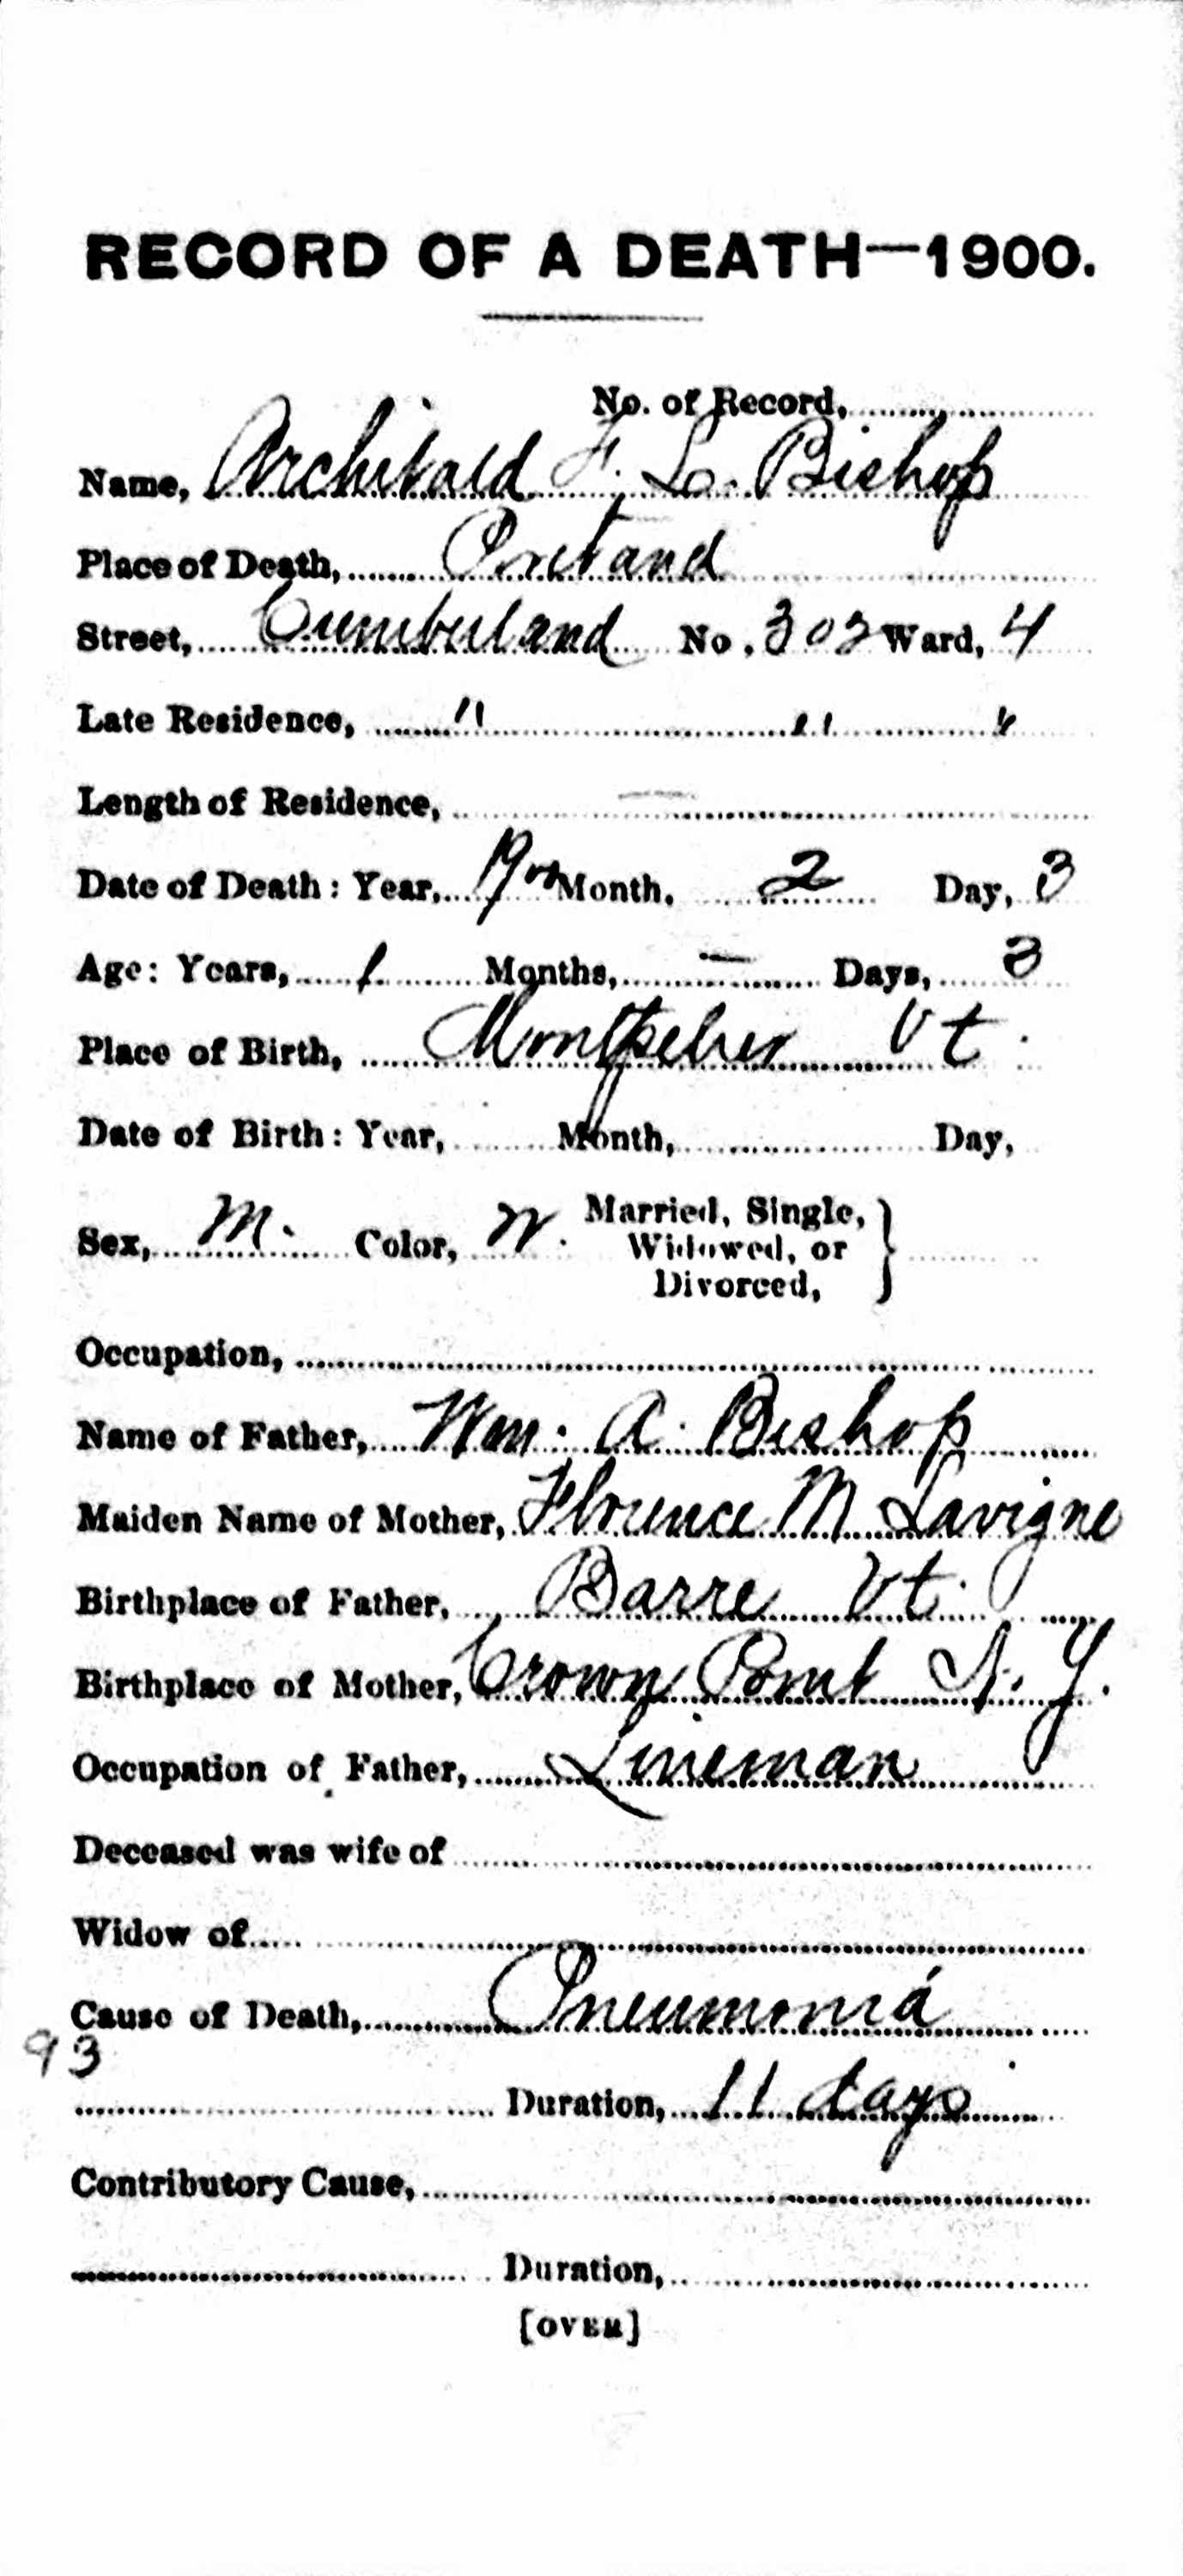 RECORD OF A DEATH—1900.
No. of Record,
Name, Archibald F. L. Bishop
Place of Death, Portland
Street, Cumberland No. 303 Ward, 4
Late Residence, " " "
Length of Residence, —
Date of Death: Year, 1900 Month, 2 Day, 3
Age: Years, 1 Months, — Days, 3
Place of Birth, Montpelier Vt.
Date of Birth: Year, Month, Day,
Sex, M. Color, W. Married, Single, Widowed, or Divorced,
Occupation,
Name of Father, Wm. A. Bishop
Maiden Name of Mother, Florence M Lavigne
Birthplace of Father, Barre Vt.
Birthplace of Mother, Crown Point N. Y.
Occupation of Father, Lineman
Deceased was wife of
Widow of
Cause of Death, Pneumonia
93
Duration, 11 days
Contributory Cause,
Duration,
[OVER]